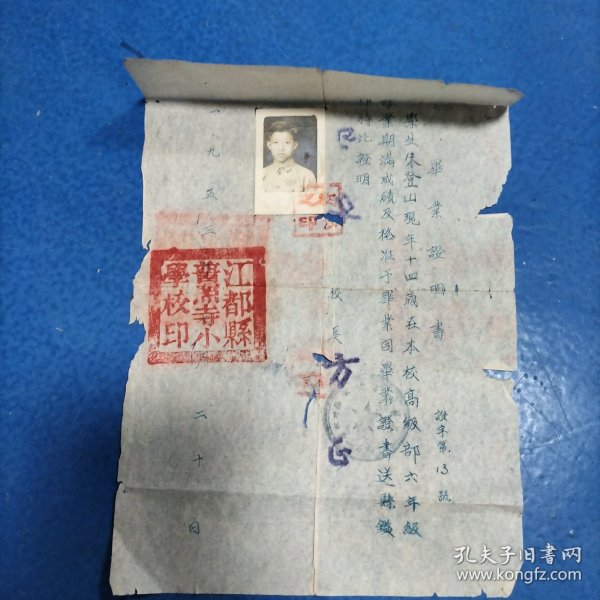 畢業證明書
證字第13號
學生朱登山現年十四歲在本校高級部六年級
修業期滿成績及格准予畢業因畢業證書送縣鑑
印特此證明
校長
方
正
一九五三
二十日
江都縣
寺小
學校印
孔夫子旧书网
www.kongfz.com